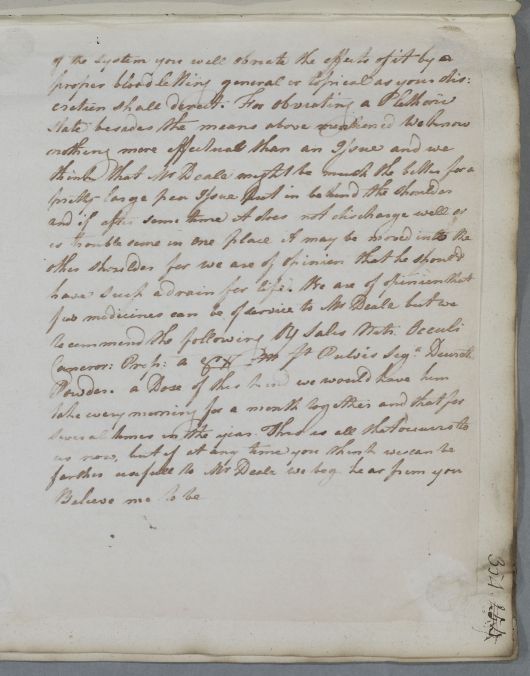 of the system you will obviate the effects of it by a
proper bloodletting general or topical as your dis:
cretion shall direct. For obviating a Plethoric
State besides the means above mentioned we know
nothing more effectual than an Issue and we
think that Mr Deale might be much the better for a
pretty large pea Issue put in behind the shoulder
and if after some time it does not discharge well or
is troublesome in one place it may be moved into the
other shoulder for we are of opinion that he should
have such a drain for life. We are of opinion that
few medicines can be of service to Mr Deale but we
recommend the following Rx Sales Nitri Occuli
Cancror: Prep: a ft Pulvis Seqr
Powder. a Dose of this kind we would have him
take every morning for a month together and that for
several times in the year. This is all that occurrs to
us now, but if at any time you think we can be
farther usefull to Mr Deale we beg hear from you
Believe me to be
304